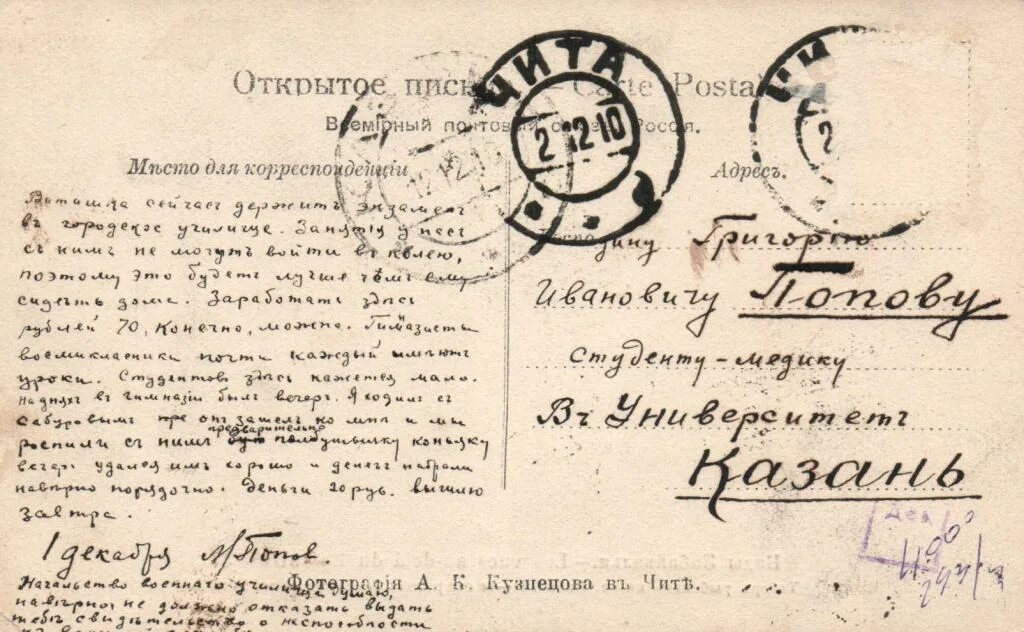 Открытое письмо — Carte Postale
Всемірный почтовый союзъ. Россія.
ЧИТА
2 12 10
Мѣсто для корреспонденціи
Адресъ.
Виташка сейчас держитъ экзамен
въ городское училище. Занятія у насъ
съ нимъ не могутъ войти въ колею,
поэтому это будетъ лучше чѣмъ ему
сидеть дома. Заработать здѣсь
рублей 70, конечно, можно. Гимназисты
восмикласники почти каждый имѣютъ
уроки. Студентовъ здѣсь кажется мало.
На дняхъ въ гимназіи былъ вечеръ. Я ходилъ съ
Сабуровымъ он зашелъ ко мнѣ и мы
предварительно
роспили съ нимъ полбутылку коньяку
вечеръ удался имъ хорошо и денегъ набрали
навѣрно порядочно. Деньги 20 руб. вышлю
завтра.
1 декабря М Попов
Начальство военнаго училища думаю,
навѣрно, не должно отказать выдать
тебѣ свидѣтельство о неспособности
Господину Григорію
Ивановичу Попову
студенту-медику
Въ Университетъ
Казань
Фотографія А. К. Кузнецова въ Читѣ.